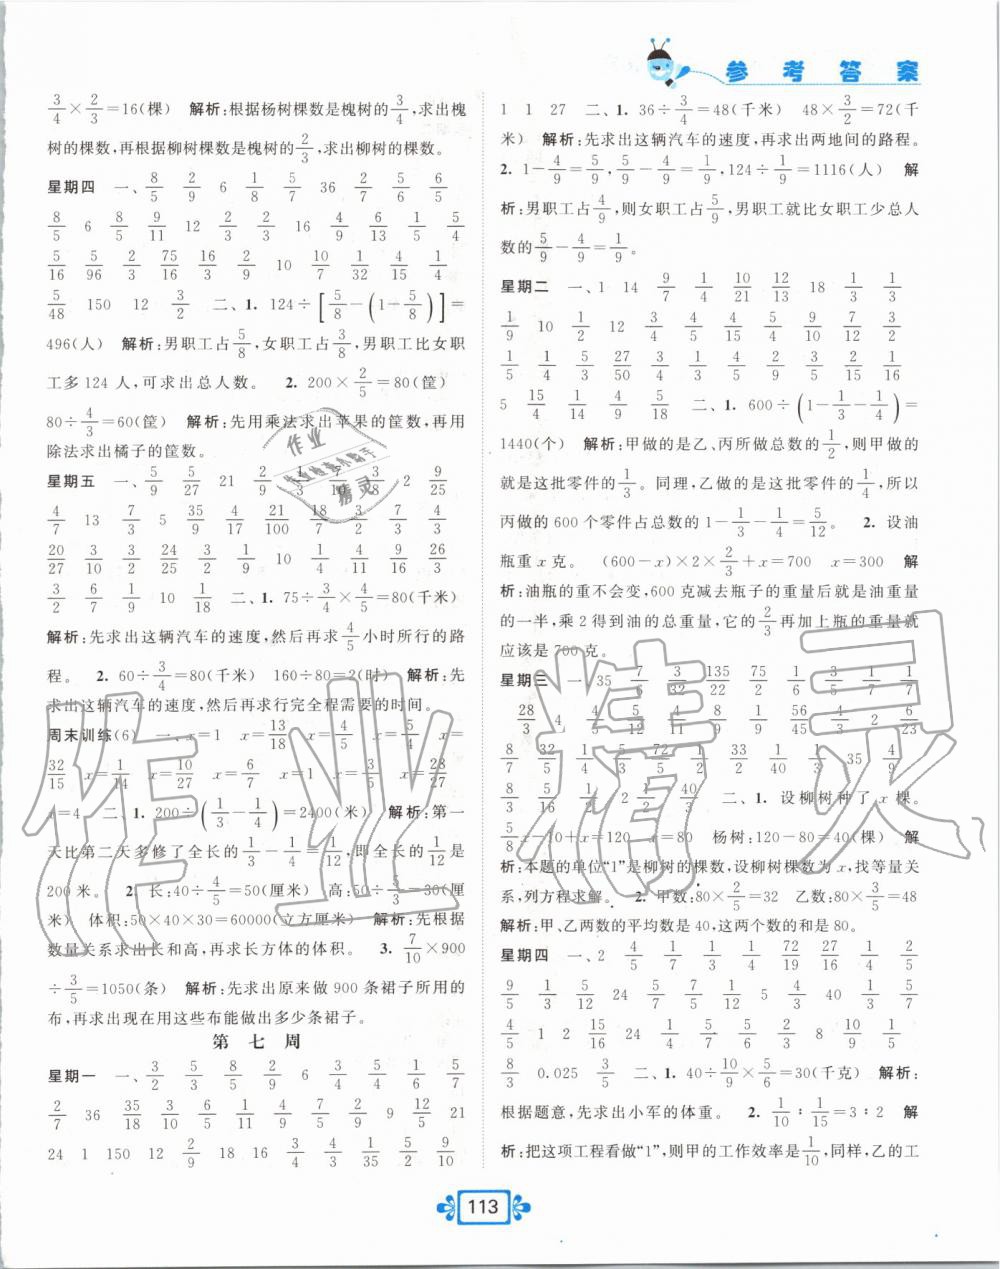 参考答案
3/4×2/3=16(棵) 解析:根据杨树棵数是槐树的3/4,求出槐
树的棵数,再根据柳树棵数是槐树的2/3,求出柳树的棵数。
星期四 一、8/5 2/9 6 1/8 5/7 36 2/7 5/6 6/5
8/5 6 8/9 9/11 12 2/3 2/3 16 4/9 6/13 1/5 5/4
5/16 5/96 2/3 75/2 16/13 2/9 10 10/11 1/32 4/15 1/4
5/48 150 12 3/2 二、1. 124÷[5/8-(1-5/8)]=
496(人) 解析:男职工占5/8,女职工占3/8,男职工比女职
工多124人,可求出总人数。 2. 200×2/5=80(筐)
80÷4/3=60(筐) 解析:先用乘法求出苹果的筐数,再用
除法求出橘子的筐数。
星期五 一、5/9 5/27 21 2/9
4/7 13 7/3 5 35/9 4/17 21/100
20/27 3/10
3/2 6/7 1/9 10 1/18 二、1. 75÷3/4×4/5=80(千米)
解析:先求出这辆汽车的速度,然后再求4/5小时所行的路
程。 2. 60÷3/4=80(千米) 160÷80=2(时) 解析:先
求出这辆汽车的速度,然后再求行完全程需要的时间。
周末训练(6) 一、x=1 x=13/18 x=4/5 x=5/4 x=
32/15 x=1/14 x=10/27 x=6/7 x=1 x=3/4 x=28/27
x=4 二、1. 200÷(1/3-1/4)=2400(米) 解析:第一
天比第二天多修了全长的1/3-1/4=1/12,全长的1/12是
200米。 2. 长:40÷4/5=50(厘米) 高:50÷5/3=30(厘
米) 体积:50×40×30=60000(立方厘米) 解析:先根据
数量关系求出长和高,再求长方体的体积。 3. 7/10×900
÷3/5=1050(条) 解析:先求出原来做900条裙子所用的
布,再求出现在用这些布能做出多少条裙子。
第七周
星期一 一、3/2 5/3 8/5 2/9 6 3/4 5/4 1/6 5/7
2/7 36 35/18 3/10 6/5 4/11 9/5 2/7 9 9/11 9/12 21
24 1 150 12 2/9 18 2/3 4/3 1/35 5/2 9/10
1 1 27 二、1. 36÷3/4=48(千米) 48×3/2=72(千
米) 解析:先求出这辆汽车的速度,再求出两地间的路程。
2. 1-4/9=5/9 5/9-4/9=1/9 124÷1/9=1116(人) 解
析:男职工占4/9,则女职工占5/9,男职工就比女职工少总人
数的5/9-4/9=1/9。
星期二 一、1 14 9/7 1/4 10/21 12/13 18 1/3 1/3
1/9 10 1/2 12 3/4 4/5 4/15 5/4 9/10 7/12 3/2
1/5 1/4 5/3 27/50 3/4 1/3 6/5 2/3 2/3 5/6 4/9
5 15/4 1/14 4/9 5/18 二、1. 600÷(1-1/3-1/4)=
1440(个) 解析:甲做的是乙、丙所做总数的1/2,则甲做的
就是这批零件的1/3。同理,乙做的是这批零件的1/4,所以
丙做的600个零件占总数的1-1/3-1/4=5/12。 2. 设油
瓶重x克。 (600-x)×2×2/3+x=700 x=300 解
析:油瓶的重不会变,600克减去瓶子的重量是油重量
的一半,乘2得到油的总重量,它的2/3再加上瓶的重量就
应该是700克。
星期三 一、35 7/6 3/32 135/22 75/7 1/6 3/2 1/7
28/3 4 4/5 5/12 4/11 8/9 1/8 56/45 4/9 2/3
8/7 32/5 1/4 5/6 72/5 1/2 33/40 1/2 1/3 35 4/9
40/3 二、1. 设柳树种了x棵。
5/8x-10+x=120 x=80 杨树:120-80=40(棵) 解
析:本题的单位“1”是柳树的棵数,设柳树棵数为x,找等量关
系,列方程求解。 2. 甲数:80×2/5=32 乙数:80×3/5=48
解析:甲、乙两数的平均数是40,这两个数的和是80。
星期四 一、2 4/5 4/7 1/7 1/3 1/4 72/19 27/4 1/16 4/5
9/5 1/3 5/12 24 5/7 5/8 1/4 5/2 40 4/3 5/3
4/5 1 2 15/16 24 1/4 5/7 5/6 2/3 8/9 15/4
8/3 0.025 3/5 二、1. 40÷10/9×5/6=30(千克) 解析:
根据题意,先求出小军的体重。 2. 1/10∶1/15=3∶2 解
析:把这项工程看做“1”,则甲的工作效率是1/10,同样,乙的工
113
作业精灵